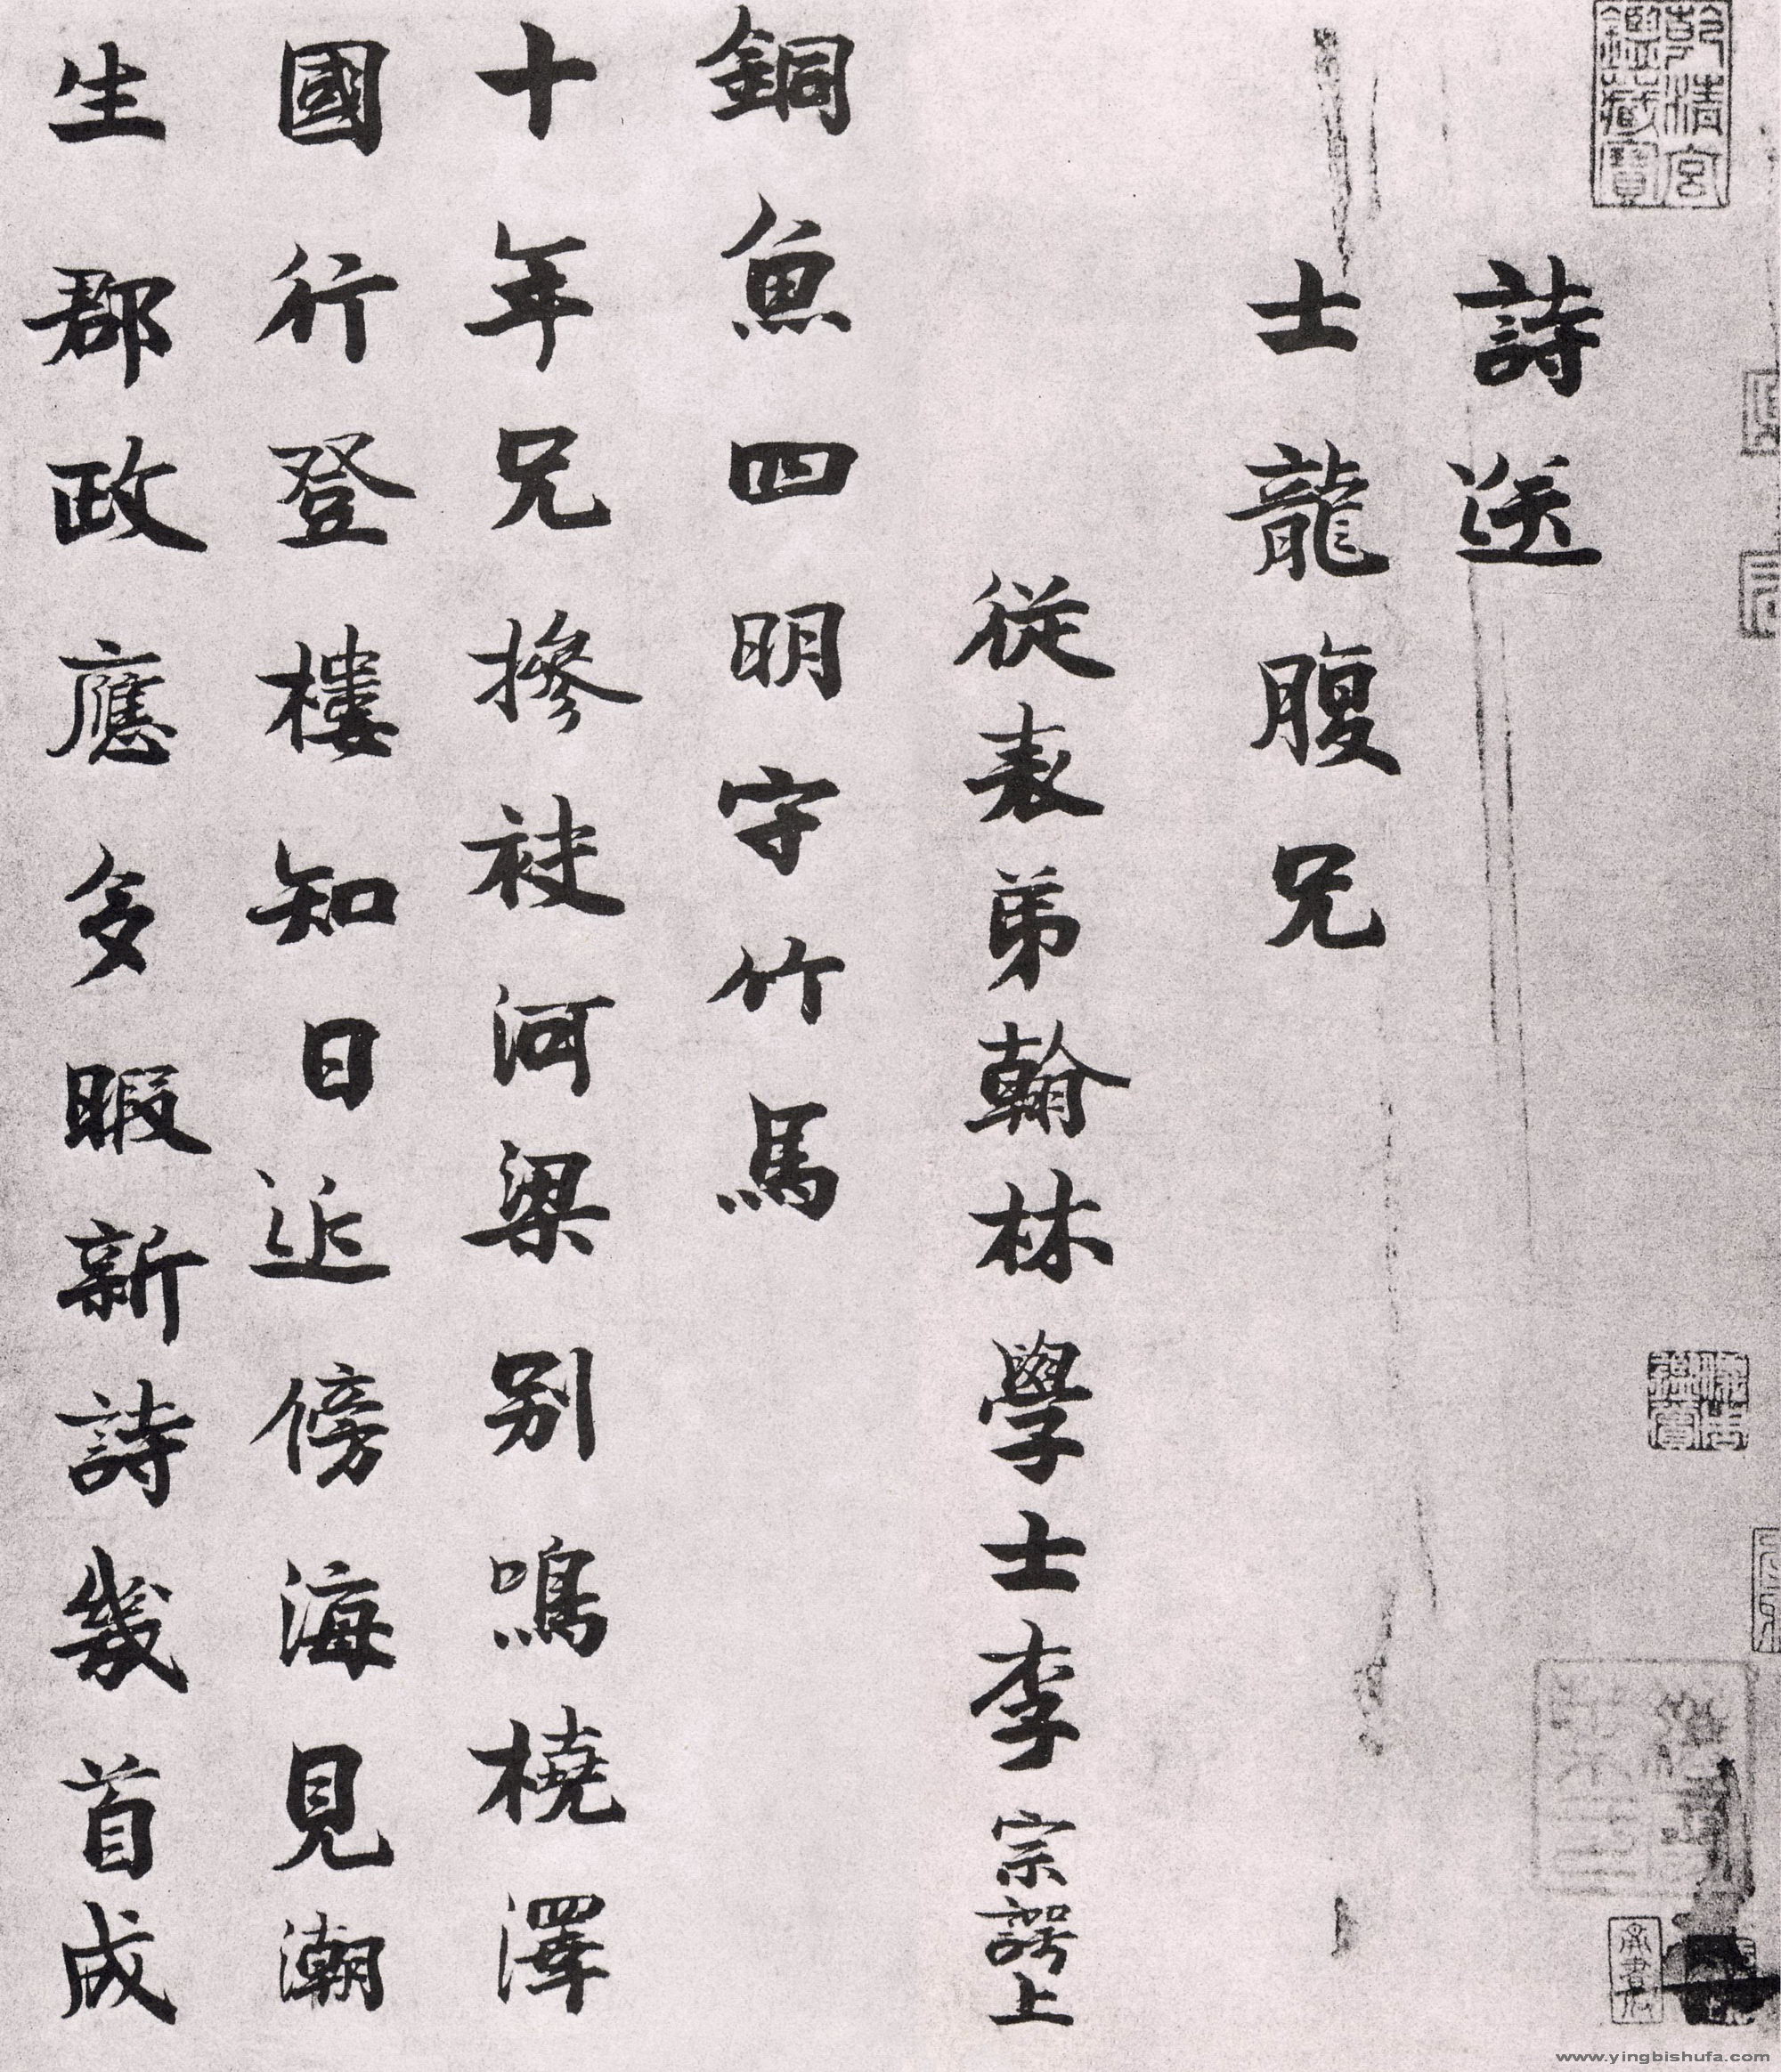 詩送
士龍腹兄
從表弟翰林學士李宗諤上
銅魚四明守竹馬
十年兄摻袂河梁別鳴橈澤
國行登樓知日近傍海見潮
生郡政應多暇新詩幾首成
乾清宮鑑藏寶
www.yingbishufa.com